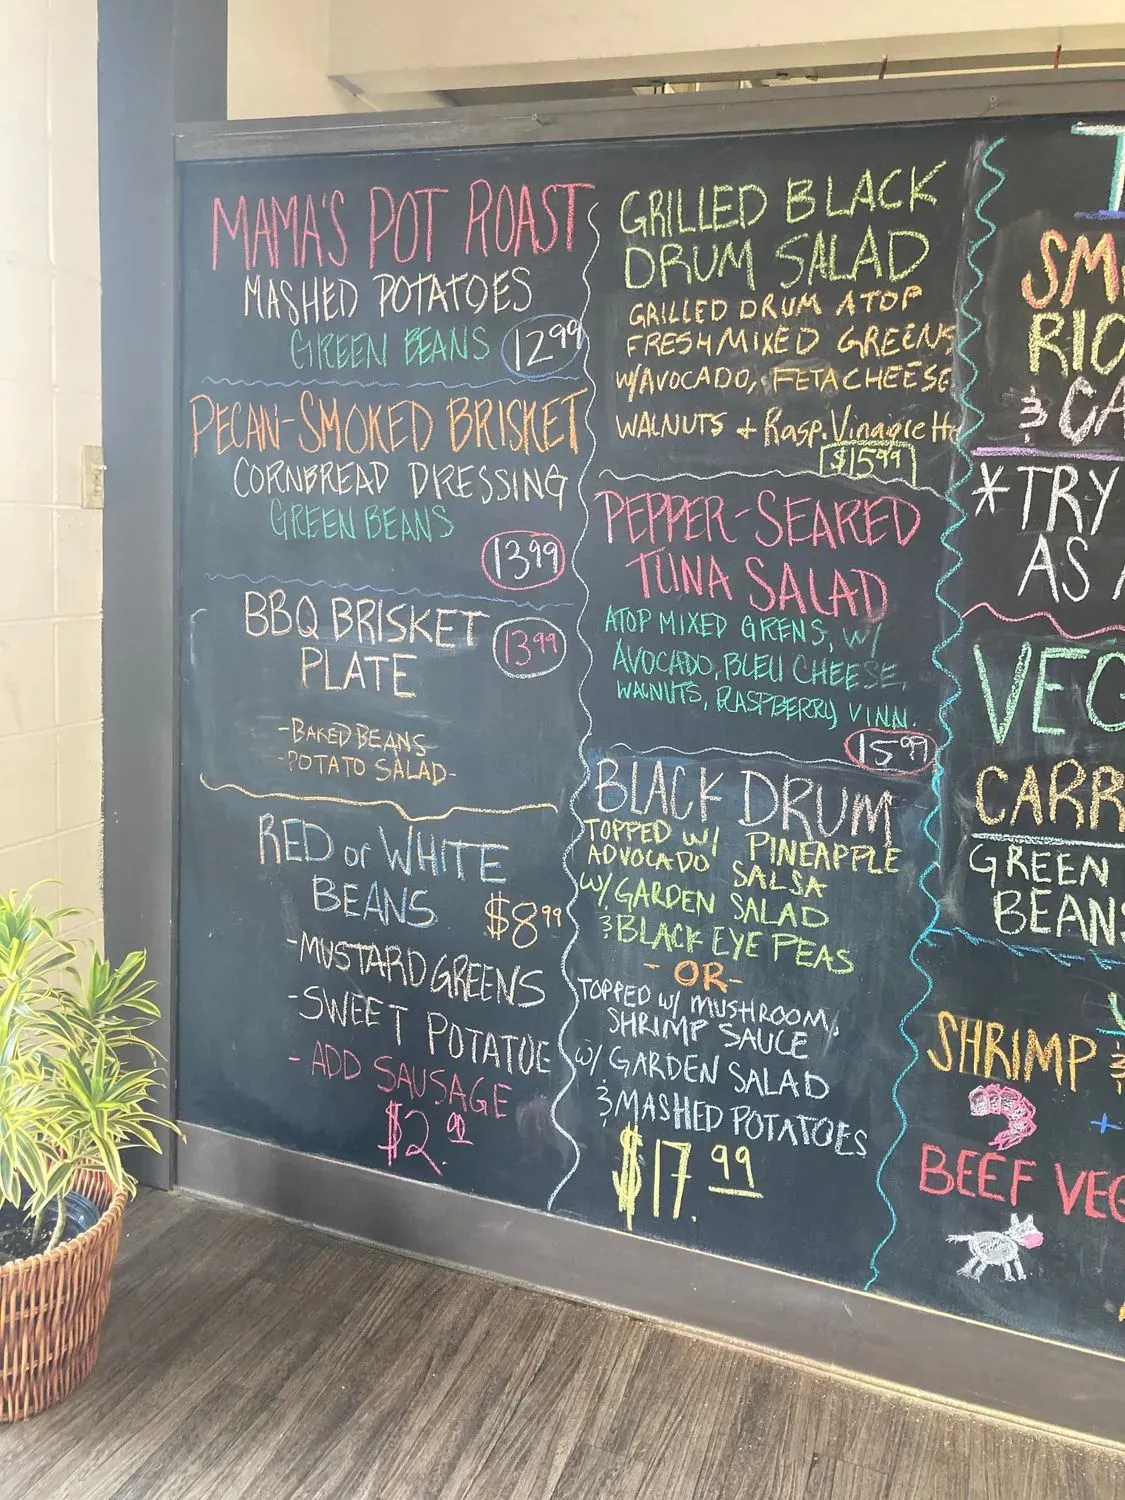 MAMA'S POT ROAST
MASHED POTATOES
GREEN BEANS 12.99
PECAN-SMOKED BRISKET
CORNBREAD DRESSING
GREEN BEANS
13.99
BBQ BRISKET
PLATE
13.99
-BAKED BEANS
-POTATO SALAD-
RED or WHITE
BEANS $8.99
-MUSTARD GREENS
-SWEET POTATOE
- ADD SAUSAGE
$2.00
GRILLED BLACK
DRUM SALAD
GRILLED DRUM ATOP
FRESH MIXED GREENS
W/AVOCADO, FETA CHEESE
WALNUTS + Rasp.
$15.99
PEPPER-SEARED
TUNA SALAD
ATOP MIXED GRENS, W/
AVOCADO, BLEU CHEESE,
WALNUTS, RASPBERRY VINN.
15.99
BLACK DRUM
TOPPED W/ PINEAPPLE
ADVOCADO SALSA
W/ GARDEN SALAD
& BLACK EYE PEAS
- OR-
TOPPED W/ MUSHROOM,
SHRIMP SAUCE
W/ GARDEN SALAD
& MASHED POTATOES
$17.99
T
SM
RIC
& CA
*TRY
AS
VEG
CARR
GREEN
BEANS
SHRIMP &
+
BEEF VEG